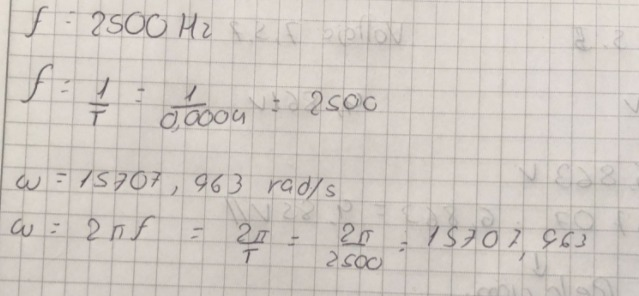 f = 2500 Hz
f = 1/T = 1/0,0004 = 2500
ω = 15707,963 rad/s
ω = 2πf = 2π/T = 2π/2500 = 15707,963